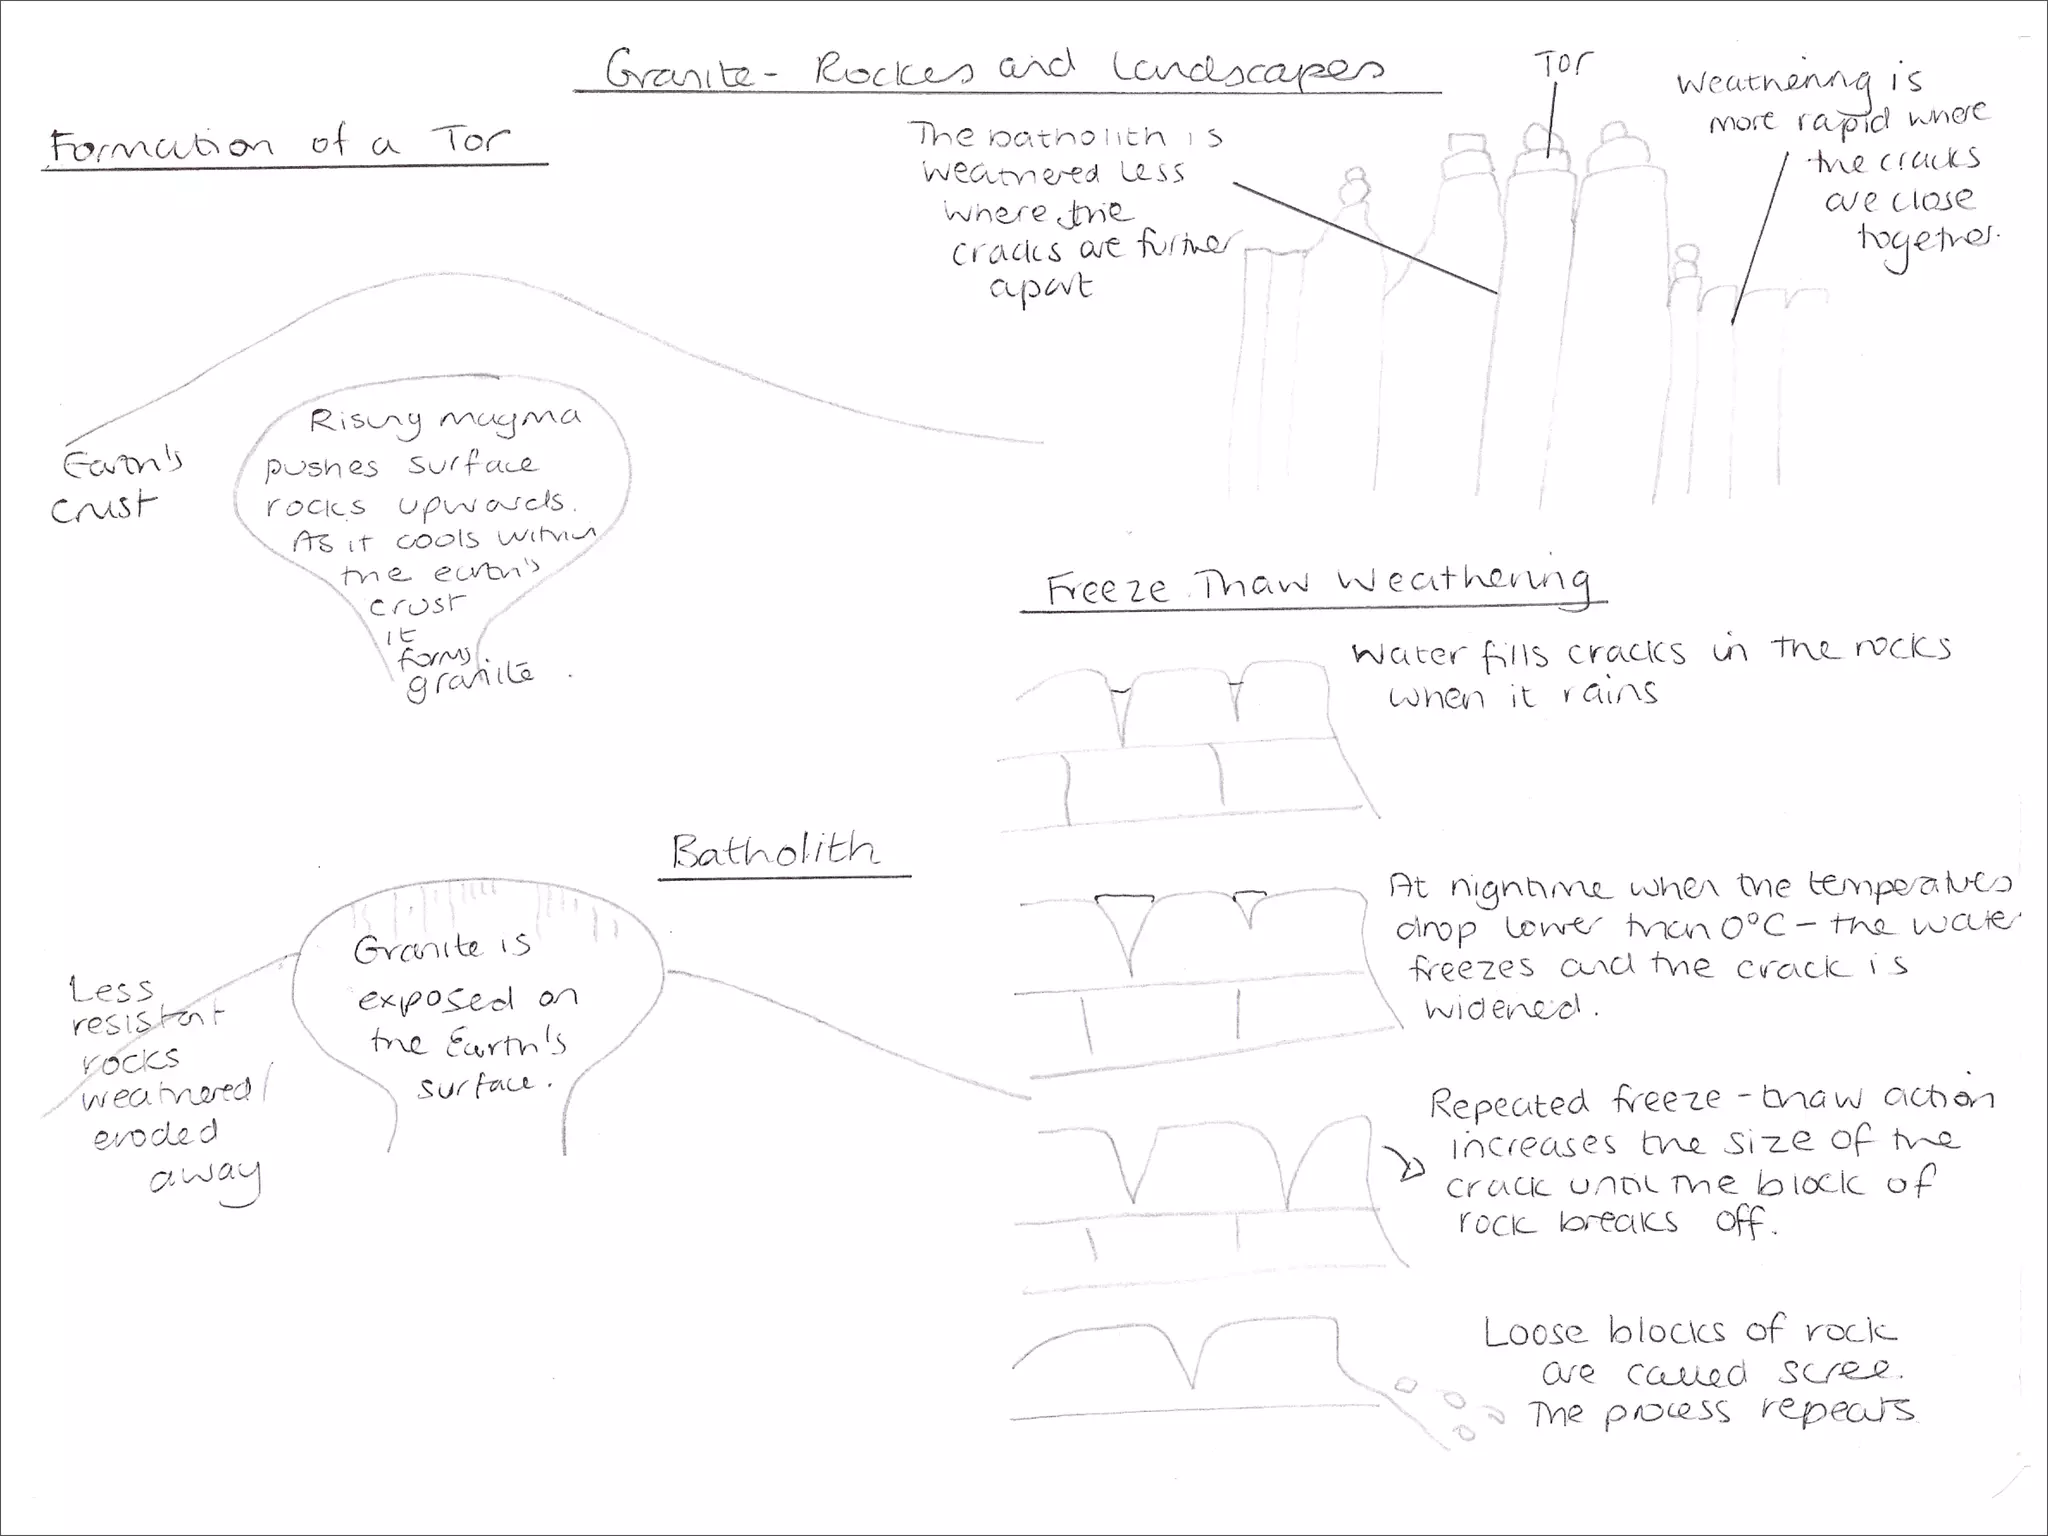 Granite - Rockes and Landscapes
Formation of a Tor
Earth's
crust
Rising magma
pushes surface
rocks upwards.
As it cools within
the earth's
crust
it
forms
granite.
The batholith is
weathered less
where the
cracks are further
apart
Tor
Weathering is
more rapid where
the cracks
are close
together.
Batholith
Less
resistant
rocks
weathered/
eroded
away
Granite is
exposed on
the Earth's
surface.
Freeze Thaw Weathering
Water fills cracks in the rocks
when it rains
At nightime when the temperatures
drop lower than 0°C - the water
freezes and the crack is
widened.
Repeated freeze - thaw action
increases the size of the
crack until the block of
rock breaks off.
Loose blocks of rock
are called scree.
The process repeats